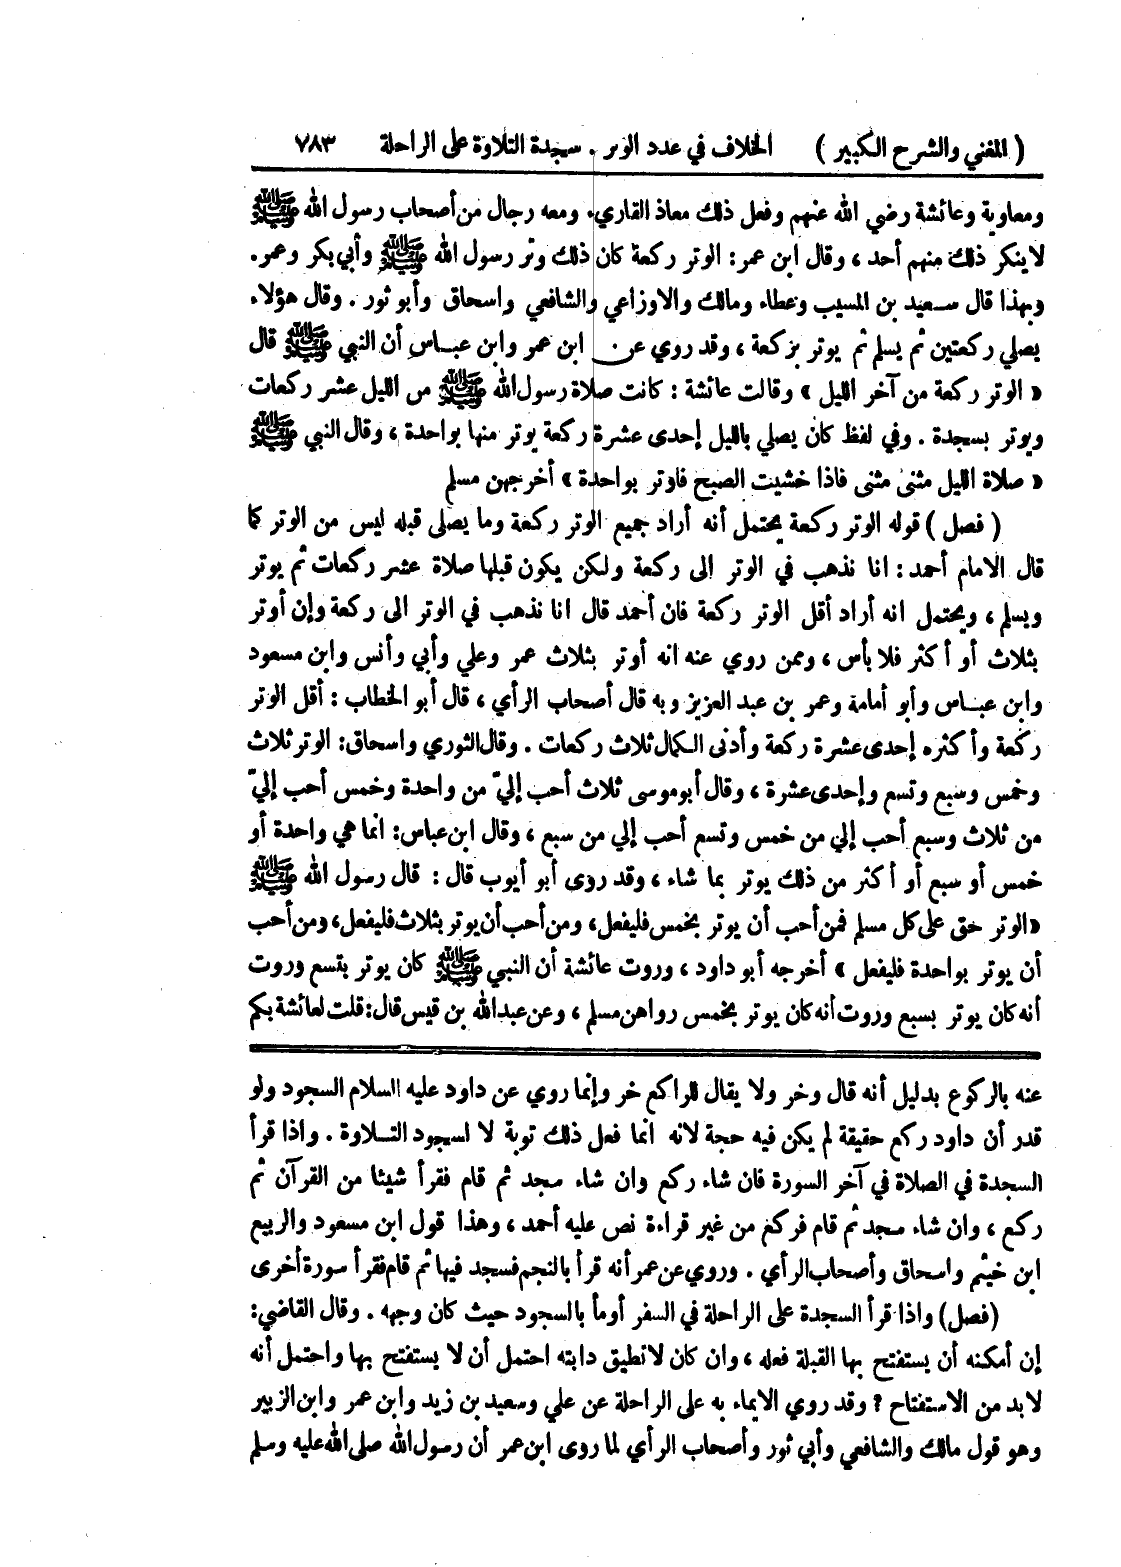 ( المغني والشرح الكبير ) الخلاف في عدد الوتر . سجدة التلاوة على الراحلة ٧٨٣
ومعاوية وعائشة رضي الله عنهم وفعل ذلك معاذ القاري. ومعه رجال من أصحاب رسول الله ﷺ
لا ينكر ذلك منهم أحد ، وقال ابن عمر: الوتر ركعة كان ذلك وتر رسول الله ﷺ وأبي بكر وعمر.
وبهذا قال سعيد بن المسيب وعطاء ومالك والاوزاعي والشافعي واسحاق وأبو ثور . وقال هؤلاء
يصلي ركعتين ثم يسلم ثم يوتر بركعة ، وقد روي عن ابن عمر وابن عباس أن النبي ﷺ قال
« الوتر ركعة من آخر الليل » وقالت عائشة : كانت صلاة رسول الله ﷺ من الليل عشر ركعات
ويوتر بسجدة . وفي لفظ كان يصلي بالليل إحدى عشرة ركعة يوتر منها بواحدة ، وقال النبي ﷺ
« صلاة الليل مثنى مثنى فاذا خشيت الصبح فاوتر بواحدة » أخرجهن مسلم
( فصل ) قوله الوتر ركعة يحتمل أنه أراد جميع الوتر ركعة وما يصلى قبله ليس من الوتر كما
قال الامام أحمد : انا نذهب في الوتر الى ركعة ولكن يكون قبلها صلاة عشر ركعات ثم يوتر
ويسلم ، ويحتمل انه أراد أقل الوتر ركعة فان أحمد قال انا نذهب في الوتر الى ركعة وإن أوتر
بثلاث أو أكثر فلا بأس ، وممن روي عنه انه أوتر بثلاث عمر وعلي وأبي وأنس وابن مسعود
وابن عباس وأبو أمامة وعمر بن عبد العزيز وبه قال أصحاب الرأي ، قال أبو الخطاب : أقل الوتر
ركعة وأكثره إحدى عشرة ركعة وأدنى الكمال ثلاث ركعات . وقال الثوري واسحاق: الوتر ثلاث
وخمس وسبع وتسع وإحدى عشرة ، وقال أبو موسى ثلاث أحب إليّ من واحدة وخمس أحب إليّ
من ثلاث وسبع أحب إلي من خمس وتسع أحب إلي من سبع ، وقال ابن عباس: انما هي واحدة أو
خمس أو سبع أو أكثر من ذلك يوتر بما شاء ، وقد روى أبو أيوب قال : قال رسول الله ﷺ
«الوتر حق على كل مسلم فمن أحب أن يوتر بخمس فليفعل، ومن أحب أن يوتر بثلاث فليفعل، ومن أحب
أن يوتر بواحدة فليفعل » أخرجه أبو داود ، وروت عائشة أن النبي ﷺ كان يوتر بتسع وروت
أنه كان يوتر بسبع وروت أنه كان يوتر بخمس رواهن مسلم ، وعن عبدالله بن قيس قال: قلت لعائشة بكم
عنه بالركوع بدليل أنه قال وخر ولا يقال للراكع خر وإنما روي عن داود عليه السلام السجود ولو
قدر أن داود ركع حقيقة لم يكن فيه حجة لانه انما فعل ذلك توبة لا لسجود التلاوة . واذا قرأ
السجدة في الصلاة في آخر السورة فان شاء ركع وان شاء سجد ثم قام فقرأ شيئا من القرآن ثم
ركع ، وان شاء سجد ثم قام فركع من غير قراءة نص عليه أحمد ، وهذا قول ابن مسعود والربيع
ابن خيثم واسحاق وأصحاب الرأي . وروي عن عمر أنه قرأ بالنجم فسجد فيها ثم قام فقرأ سورة أخرى
(فصل) واذا قرأ السجدة على الراحلة في السفر أومأ بالسجود حيث كان وجهه . وقال القاضي:
إن أمكنه أن يستفتح بها القبلة فعله ، وان كان لا تطيق دابته احتمل أن لا يستفتح بها واحتمل أنه
لا بد من الاستفتاح ؟ وقد روي الايماء به على الراحلة عن علي وسعيد بن زيد وابن عمر وابن الزبير
وهو قول مالك والشافعي وأبي ثور وأصحاب الرأي لما روى ابن عمر أن رسول الله صلى الله عليه وسلم